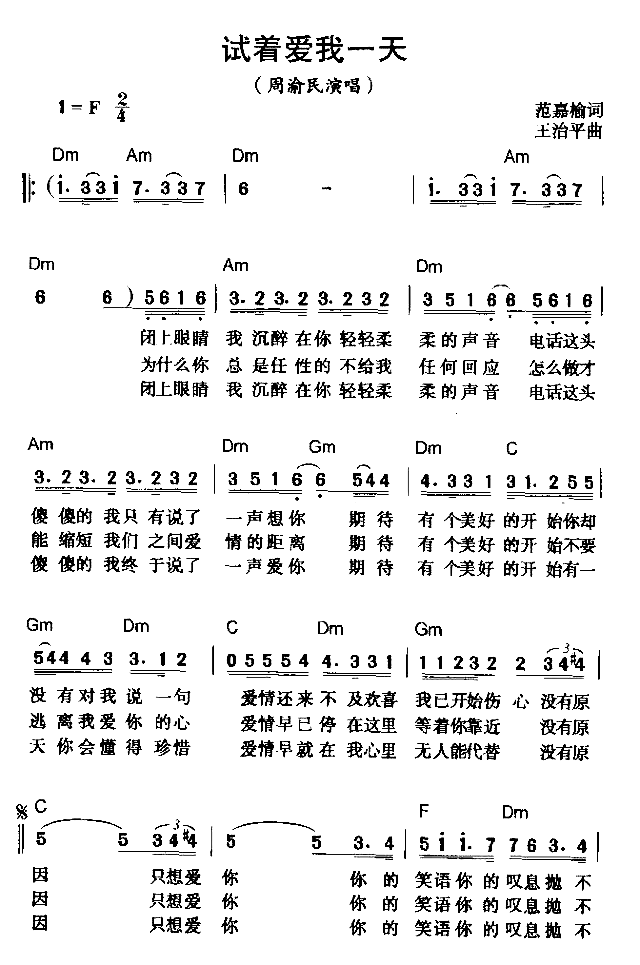 试着爱我一天
（周渝民演唱）
1=F 2/4
范嘉榆词
王治平曲
Dm Am Dm Am
‖: ( i. 3 3 i 7. 3 3 7 | 6 - | i. 3 3 i 7. 3 3 7 |
Dm Am Dm
6 6 ) 5 6 1 6 | 3. 2 3. 2 3. 2 3 2 | 3 5 1 6 6 5 6 1 6 |
闭上眼睛 我沉醉在你轻轻柔 柔的声音 电话这头
为什么你 总是任性的不给我 任何回应 怎么做才
闭上眼睛 我沉醉在你轻轻柔 柔的声音 电话这头
Am Dm Gm Dm C
3. 2 3. 2 3. 2 3 2 | 3 5 1 6 6 5 4 4 | 4. 3 3 1 3 1. 2 5 5 |
傻傻的我只有说了 一声想你 期待 有个美好的开始你却
能缩短我们之间爱 情的距离 期待 有个美好的开始不要
傻傻的我终于说了 一声爱你 期待 有个美好的开始有一
Gm Dm C Dm Gm
5 4 4 4 3 3. 1 2 | 0 5 5 5 5 4 4. 3 3 1 | 1 1 2 3 2 2 3 4 #4 |
没有对我说一句 爱情还来不及欢喜 我已开始伤心 没有原
逃离我爱你的心 爱情早已停在这里 等着你靠近 没有原
天你会懂得珍惜 爱情早就在我心里 无人能代替 没有原
C F Dm
5 5 3 4 #4 | 5 5 3. 4 | 5 i i. 7 7 6 3. 4 |
因 只想爱 你 你的 笑语你的叹息抛不
因 只想爱 你 你的 笑语你的叹息抛不
因 只想爱 你 你的 笑语你的叹息抛不